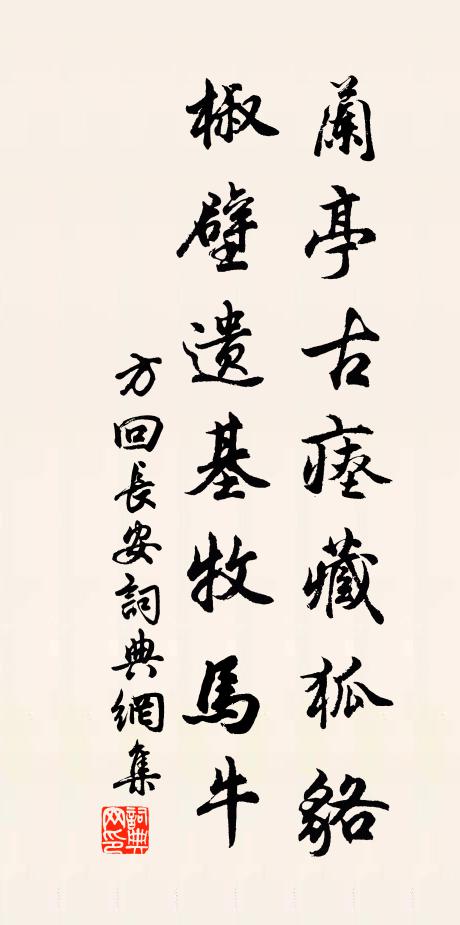 蘭亭古瘞藏狐貉
椒壁遺基牧馬牛
方回長安詞典網集
詞典网印